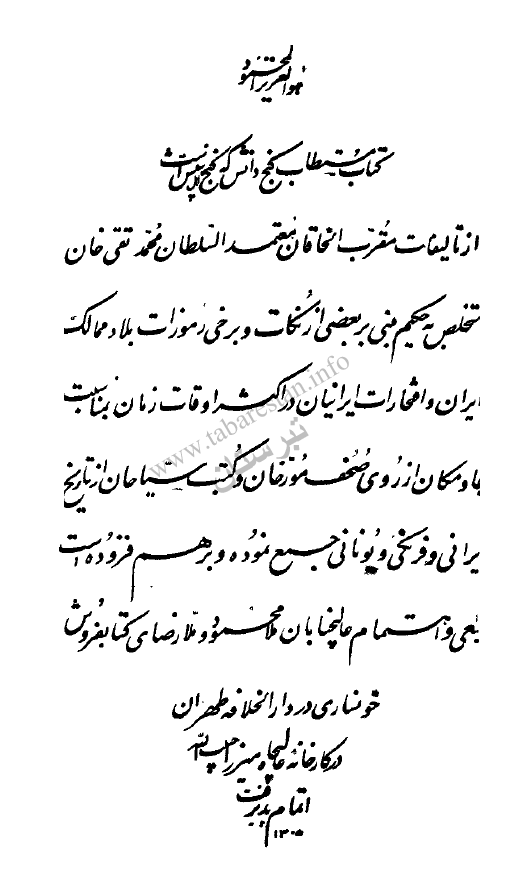 هو العزیز المحمود
کتاب مستطاب گنج دانش که گنج بلا رنج است
از تالیفات مقرب الخاقان معتمد السلطان محمد تقی خان
متخلص به حکیم مبنی بر بعضی از نکات و برخی رموزات بلاد ممالک
ایران و افتخارات ایرانیان در اکثر اوقات زمان بمناسبت
جا و مکان از روی صحف مورخان و کتب سیاحان از تاریخ
یرانی و فرنگی و یونانی جمیع نموده و بر هم فزوده است
بسعی و اهتمام عالیجنابان ملا محمود و ملا رضای کتابفروش
خونساری در دارالخلافه طهران
در کارخانه عالیجاه میرزا حبیب الله
اتمام پذیرفت
۱۳۰۵
www.tabarestan.info
تبرستان